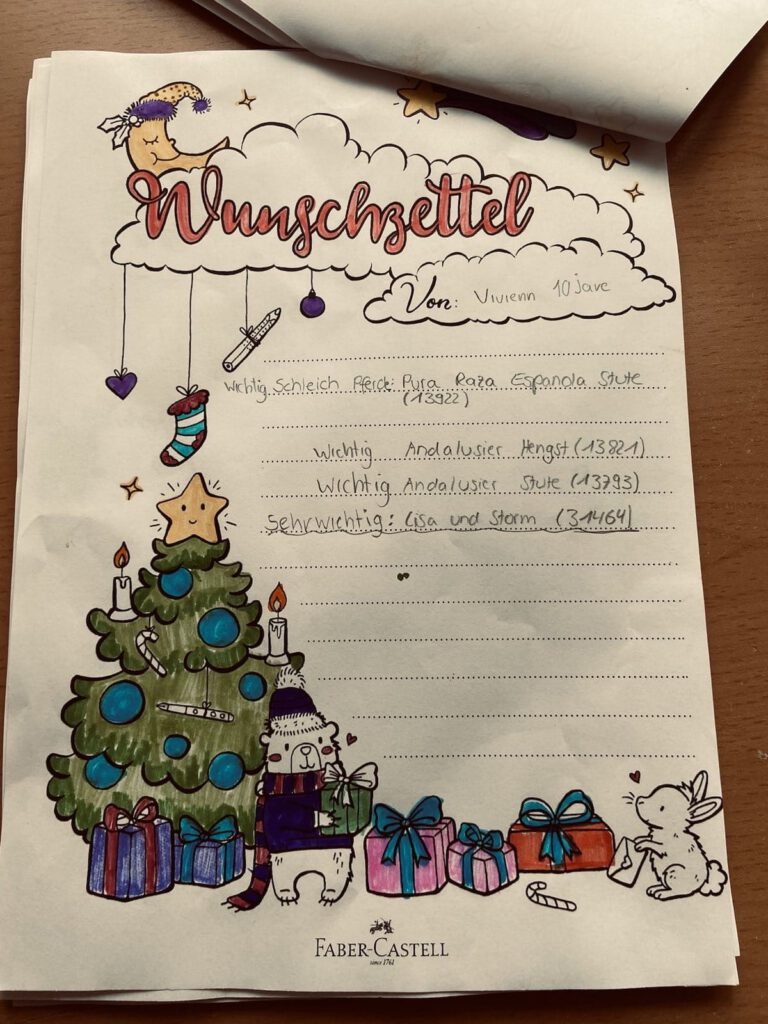 Wunschzettel
Von: Vivienn 10 Jare
Wichtig Schleich Pferde: Pura Raza Espanola Stute
(13922)
Wichtig Andalusier Hengst (13821)
Wichtig Andalusier Stute (13793)
Sehrwichtig: Lisa und Storm (31464)
FABER-CASTELL
since 1761